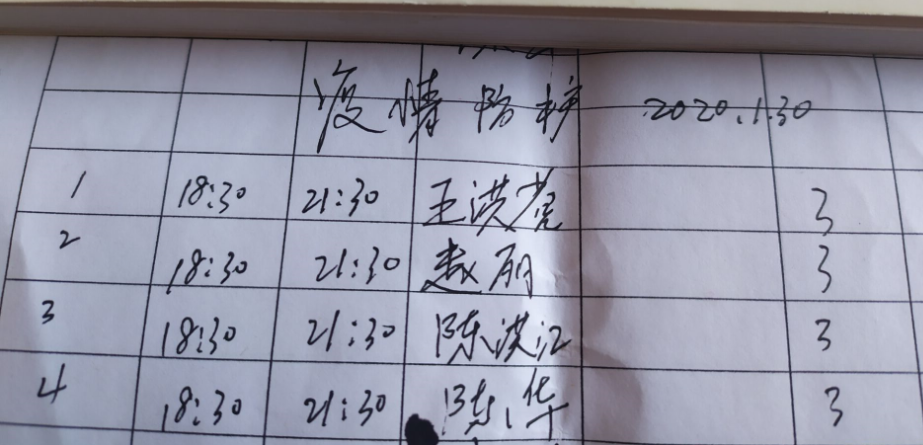 疫情防护 2020.1.30
1 18:30 21:30 王洪虎 3
2 18:30 21:30 赵丽 3
3 18:30 21:30 陈洪江 3
4 18:30 21:30 陈华 3